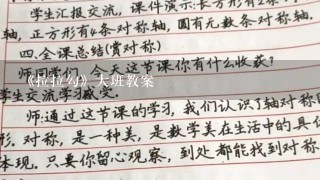 学生汇报交流,课件演示:长方形有2条
轴,正方形有4条对称轴,圆有无数条对称轴.
四.全课总结(赏对称)
师:同学们,今天这节课你有什么收获?
《拉拉勾》大班教案
学生交流学习感受.
师:通过这节课的学习,我们认识了轴对称
形.对称,是一种美,是数学美在生活中的具
体现.只要你留心观察,到处都能找到对称